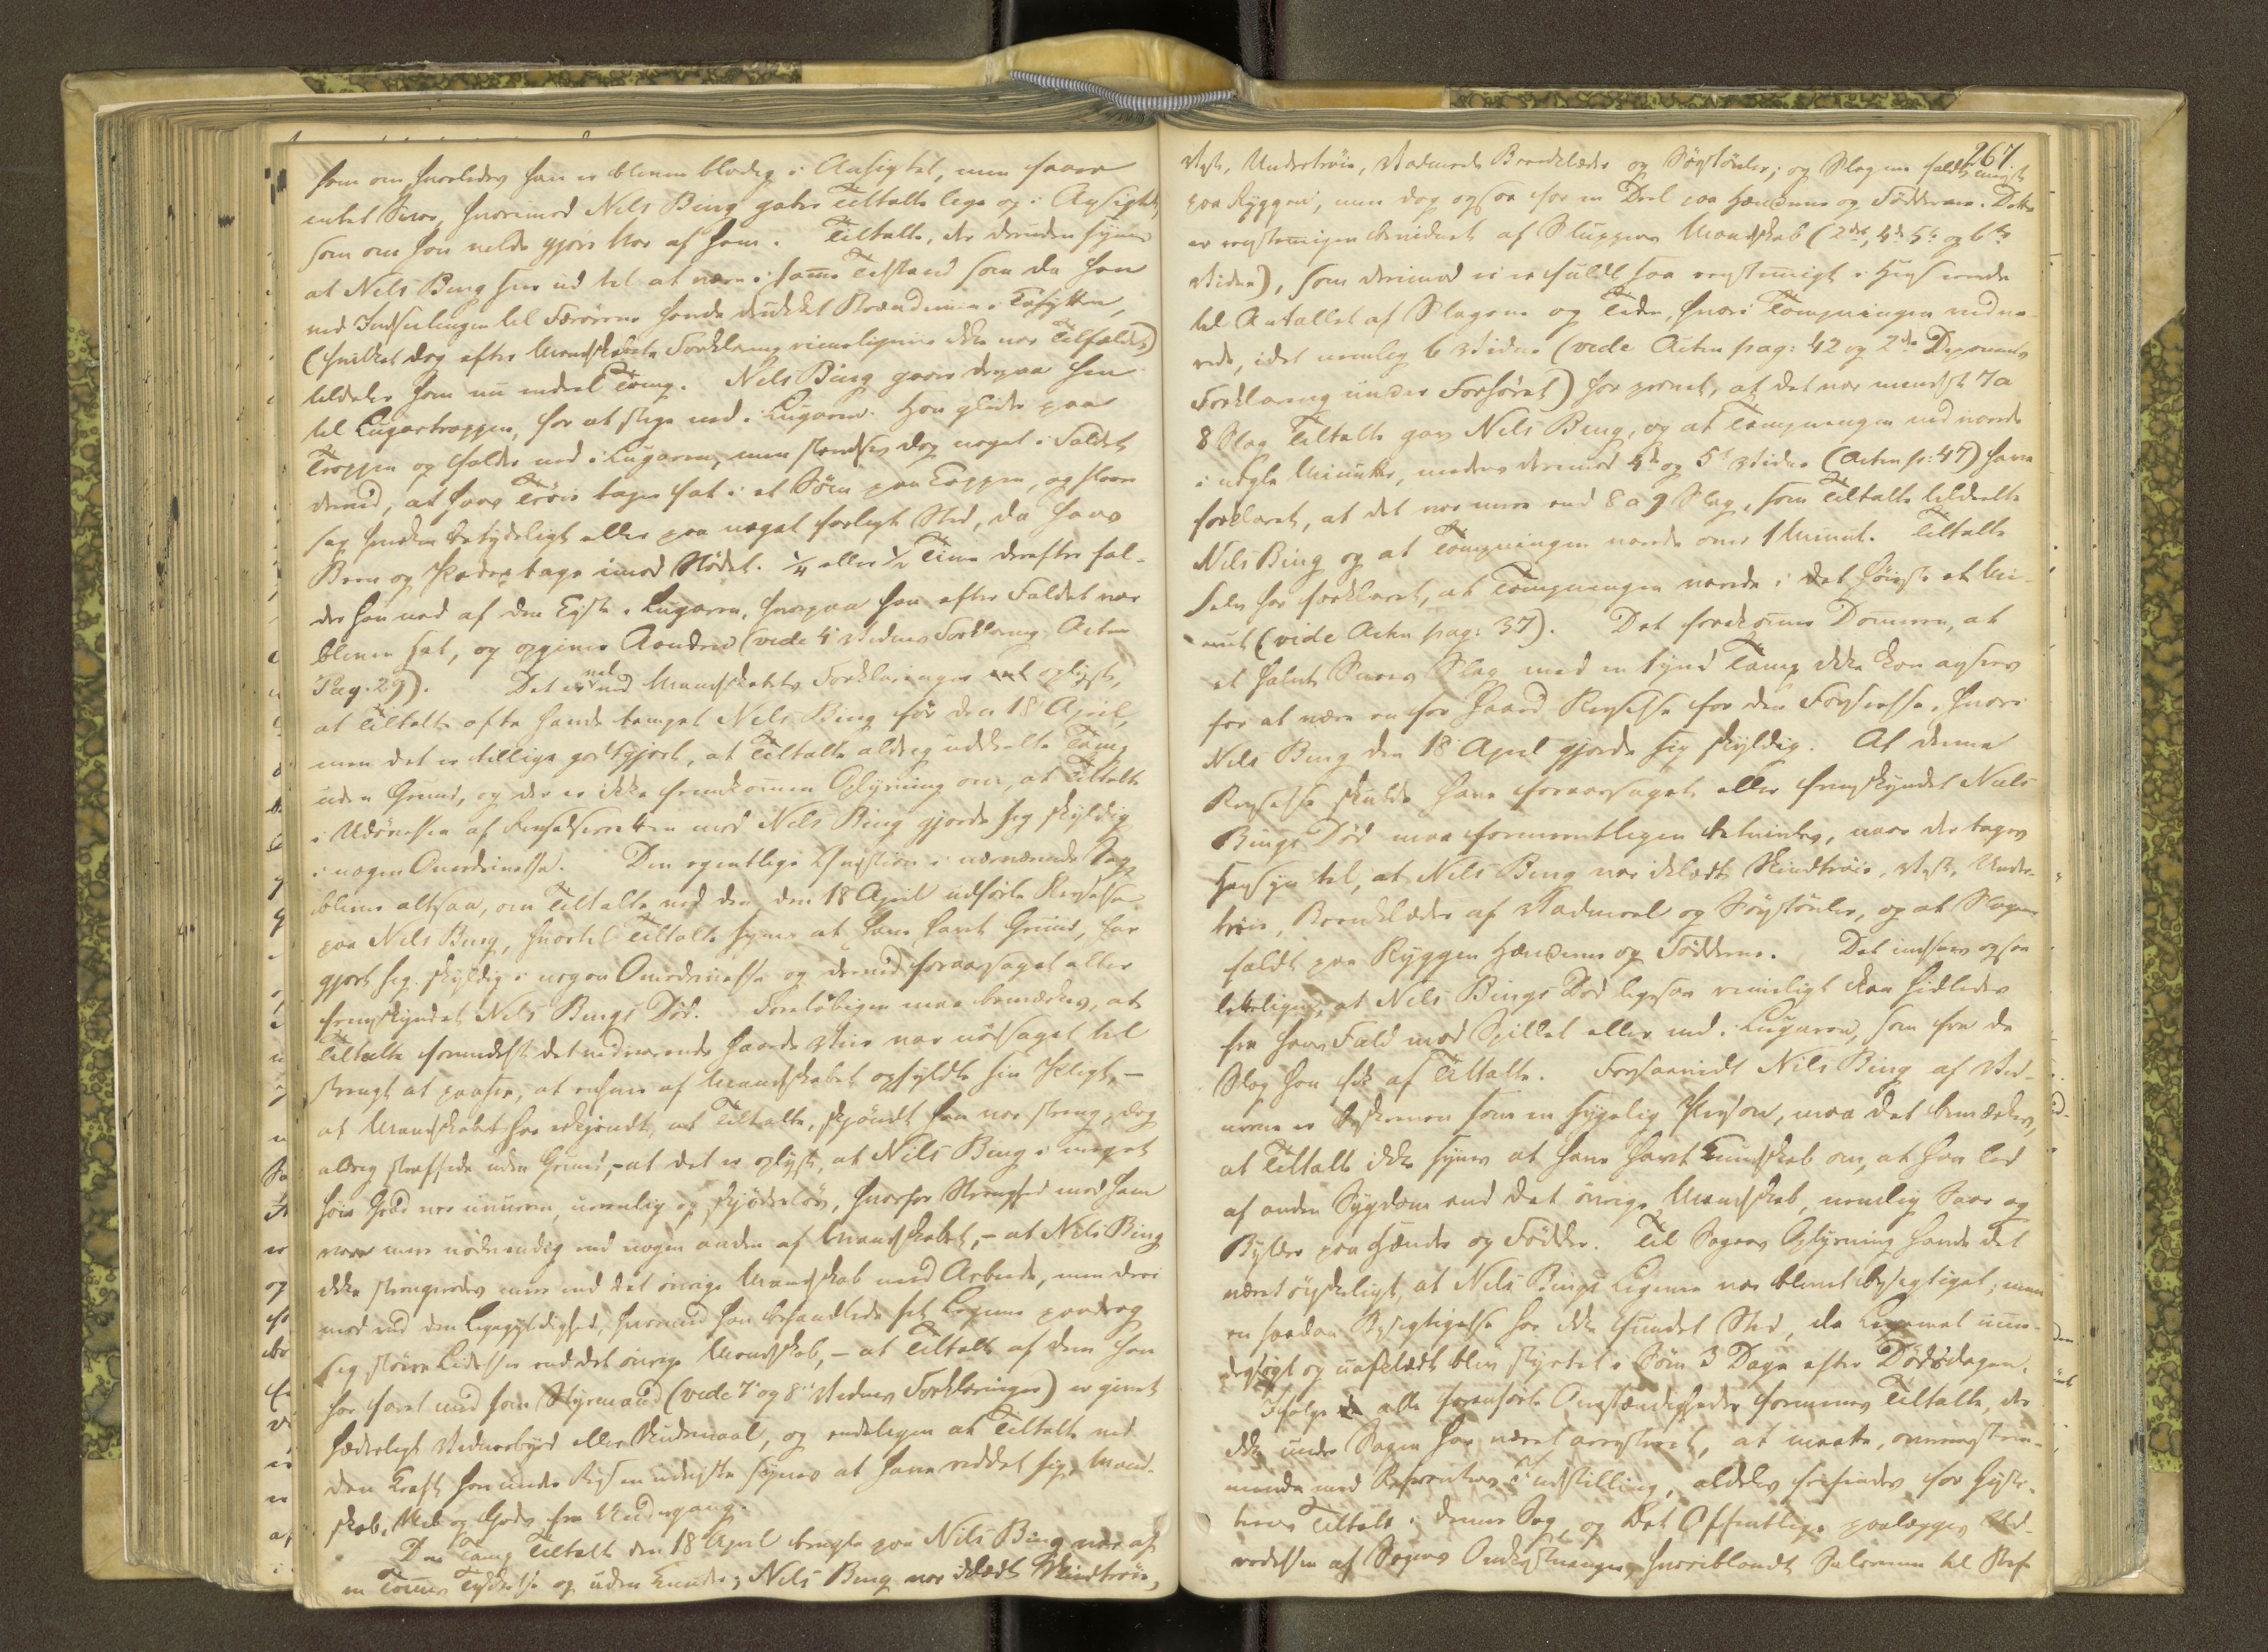 ham om hvorledes han er bleven blodig i Ansigtet, men faaer
intet Svar, hvorimod Nels Bing gaber Tiltalte lige op i Ansigtet,
som om han vilde gjøre Nar af ham. Tiltalte, der desuden synes
at Nels Bing seer ud til at være i samme Tilstand som da han
ved Indseilingen til Færøerne havde drukket Brændeviin i
(hvilket dog efter Mandskabets Forklaring rimeligviis ikke var Tilfældet)
tildeler ham nu endeel Tamp. Nels Bing gaaer derpaa hen
til Lugartrappen, for at stige ned i Lugaren. Han glider paa
Trappen og falder ned i Lugaren, men standses dog noget i Faldet
derved, at hans Trøie tager fat i et Søm paa Trappen, og slaaer
sig hverken betydeligt eller paa noget farligt Sted, da hans
Been og tage imod Stødet. 1/4 eller 1/2 Time derefter fal-
der han ned af den Kiste i Lugaren, hvorpaa han efter Faldet var
bleven sat, og opgiver Aanden (vide 4 Vidnes Forklaring Acten
Pag. 29). Det er vel ved Mandskabets Forklaringer oplyst,
at Tiltalte ofte havde tampet Nels Bing før den 18 April,
men det er tillige godtgjort, at Tiltalte aldrig uddeelte Tamp
uden Grund, og der er ikke fremkommen Oplysning om, at Tiltalte
i Udøvelsen af Revselsesretten mod Nels Bing gjorde sig skyldig
i nogen Overdrivelse. Den egentlige Qvæstion i nærværende Sag
bliver altsaa, om Tiltalte ved den den 18 April udførte Revselse
paa Nels Bing, hvortil Tiltalte synes at have havt Grund, har
gjort sig skyldig i nogen Overdrivelse og derved foraarsaget eller
fremskyndet Nels Bings Død. Foreløbigen maa bemærkes, at
Tiltalte formedelst det vedvarende haarde Veir var nødsaget til
strengt at paasee, at enhver af Mandskabet opfyldte sin Pligt, –
at Mandskabet har erkjendt, at Tiltalte, skjøndt han var streng, dog
aldrig straffede uden Grund, – at det er oplyst, at Nels Bing i meget
høi Grad var urenlig og skjødesløs, hvorfor Strenghed mod ham
var mere nødvendig end nogen anden af Mandskabet, – at Nels Bing
ikke strengeredes mere end det øvrige Mandskab med Arbeide, men deri-
mod ved den Ligegyldighed, hvormed han behandlede sit Legeme paadrog
sig større Lidelser end det øvrige Mandskab, – at Tiltalte af dem han
har faret med som Styrmand (vide 7 og 8 Vidnes Forklaringer) er givet
hæderligt Vidnesbyrd eller Skudsmaal, og endeligen at Tiltalte ved
den Kraft han under Reisen udviste synes at have reddet sig, Mand-
skab, Skib og Gods fra Undergang.
Den Tamp Tiltalte den 18 April brugte paa Nels Bing var af
en Tommes Tykkelse og uden Knuder; Nels Bing var iklædt Skindtrøie,
267.
Vest, Undertrøie, Vadmels Beenklæder og Søstøvler; og Slagene faldt meest
paa Ryggen, men dog ogsaa for en Deel paa Hænderne og Fødderne. Dette
er eenstemmigen bevidnet af Sluppens Mandskab (2det, 4de 5te og 6te
Vidne), som derimod ei er fuldt saa eenstemmigt i Henseende
til Antallet af Slagene og Tiden, hvori Tampningen vedva-
rede, idet nemlig 6 Vidne (vide Acten pag: 42 og 2det Deponents
Forklaring under Forhøret) har provet, at det var mindst 7 a
8 Slag Tiltalte gav Nels Bing, og at Tampningen vedvarede
i nogle Minutter, medens derimod 4de og 5te Vidne (Acten p: 47) have
forklaret, at det var mere end 8 a 9 Slag, som Tiltalte tildeelte
Nels Bing og at Tampningen varede over 1 Minut. Tiltalte
selv har forklaret, at Tampningen varede i det høieste et Mi-
nut (vide Acten pag: 37). Det forekommer Dommeren, at
et halvt Snees Slag med en tynd Tamp ikke kan ansees
for at være en for haard Revselse for den Forseelse, hvori
Nels Bing den 18 April gjorde sig skyldig. At denne
Revselse skulde have foraarsaget eller fremskyndet Nels
Bings Død maa formeentligen betvivles, naar der tages
Hensyn til, at Nels Bing var iklædt Skindtrøie, Vest, Under-
trøie, Beenklæder af Vadmel og Søstøvler, og at Slagene
faldt paa Ryggen Hænderne og Fødderne. Det indsees ogsaa
letteligen, at Nels Bings Død ligesaa rimeligt kan hidledes
fra hans Fald mod Spillet eller ned i Lugaren, som fra de
Slag han fik af Tiltalte. Forsaavidt Nels Bing af Vid-
nerne er beskreven som en sygelig Person, maa det bemærkes,
at Tiltalte ikke synes at have havt Kundskab om, at han led
af anden Sygdom end det øvrige Mandskab, nemlig Saar og
Bylder paa Hænder og Fødder. Til Sagens Oplysning havde det
været ønskeligt, at Nels Bings Legeme var blevet besigtiget; men
en saadan Besigtigelse har ikke fundet Sted, da Legemet uun-
dersøgt og uafklædt blev styrtet i Søen 3 Dage efter Dødsdagen.
Ifølge alle foranførte Omstændigheder formenes Tiltalte, der
ikke under Sagen har været arresteret, at maatte, overeensstem-
mende med Defensors Indstilling, aldeles frifindes for Justi-
tiens Tiltale i denne Sag og det Offentlige paalægges Ud-
redelsen af Sagens Omkostninger, hvoriblandt Salarium til Def-